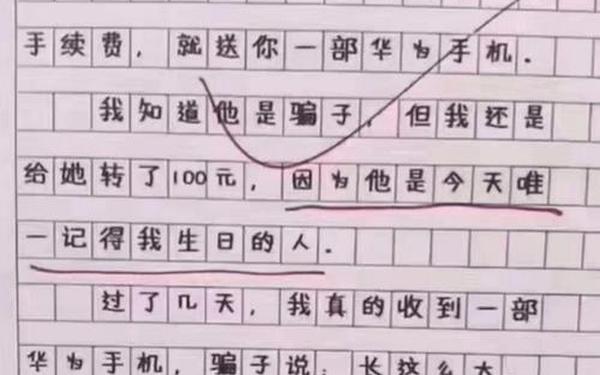 手续费，就送你一部华为手机．
我知道他是骗子，但我还是
给她转了100元，因为他是今天唯
一记得我生日的人．
过了几天，我真的收到一部
华为手机，骗子说：长这么大